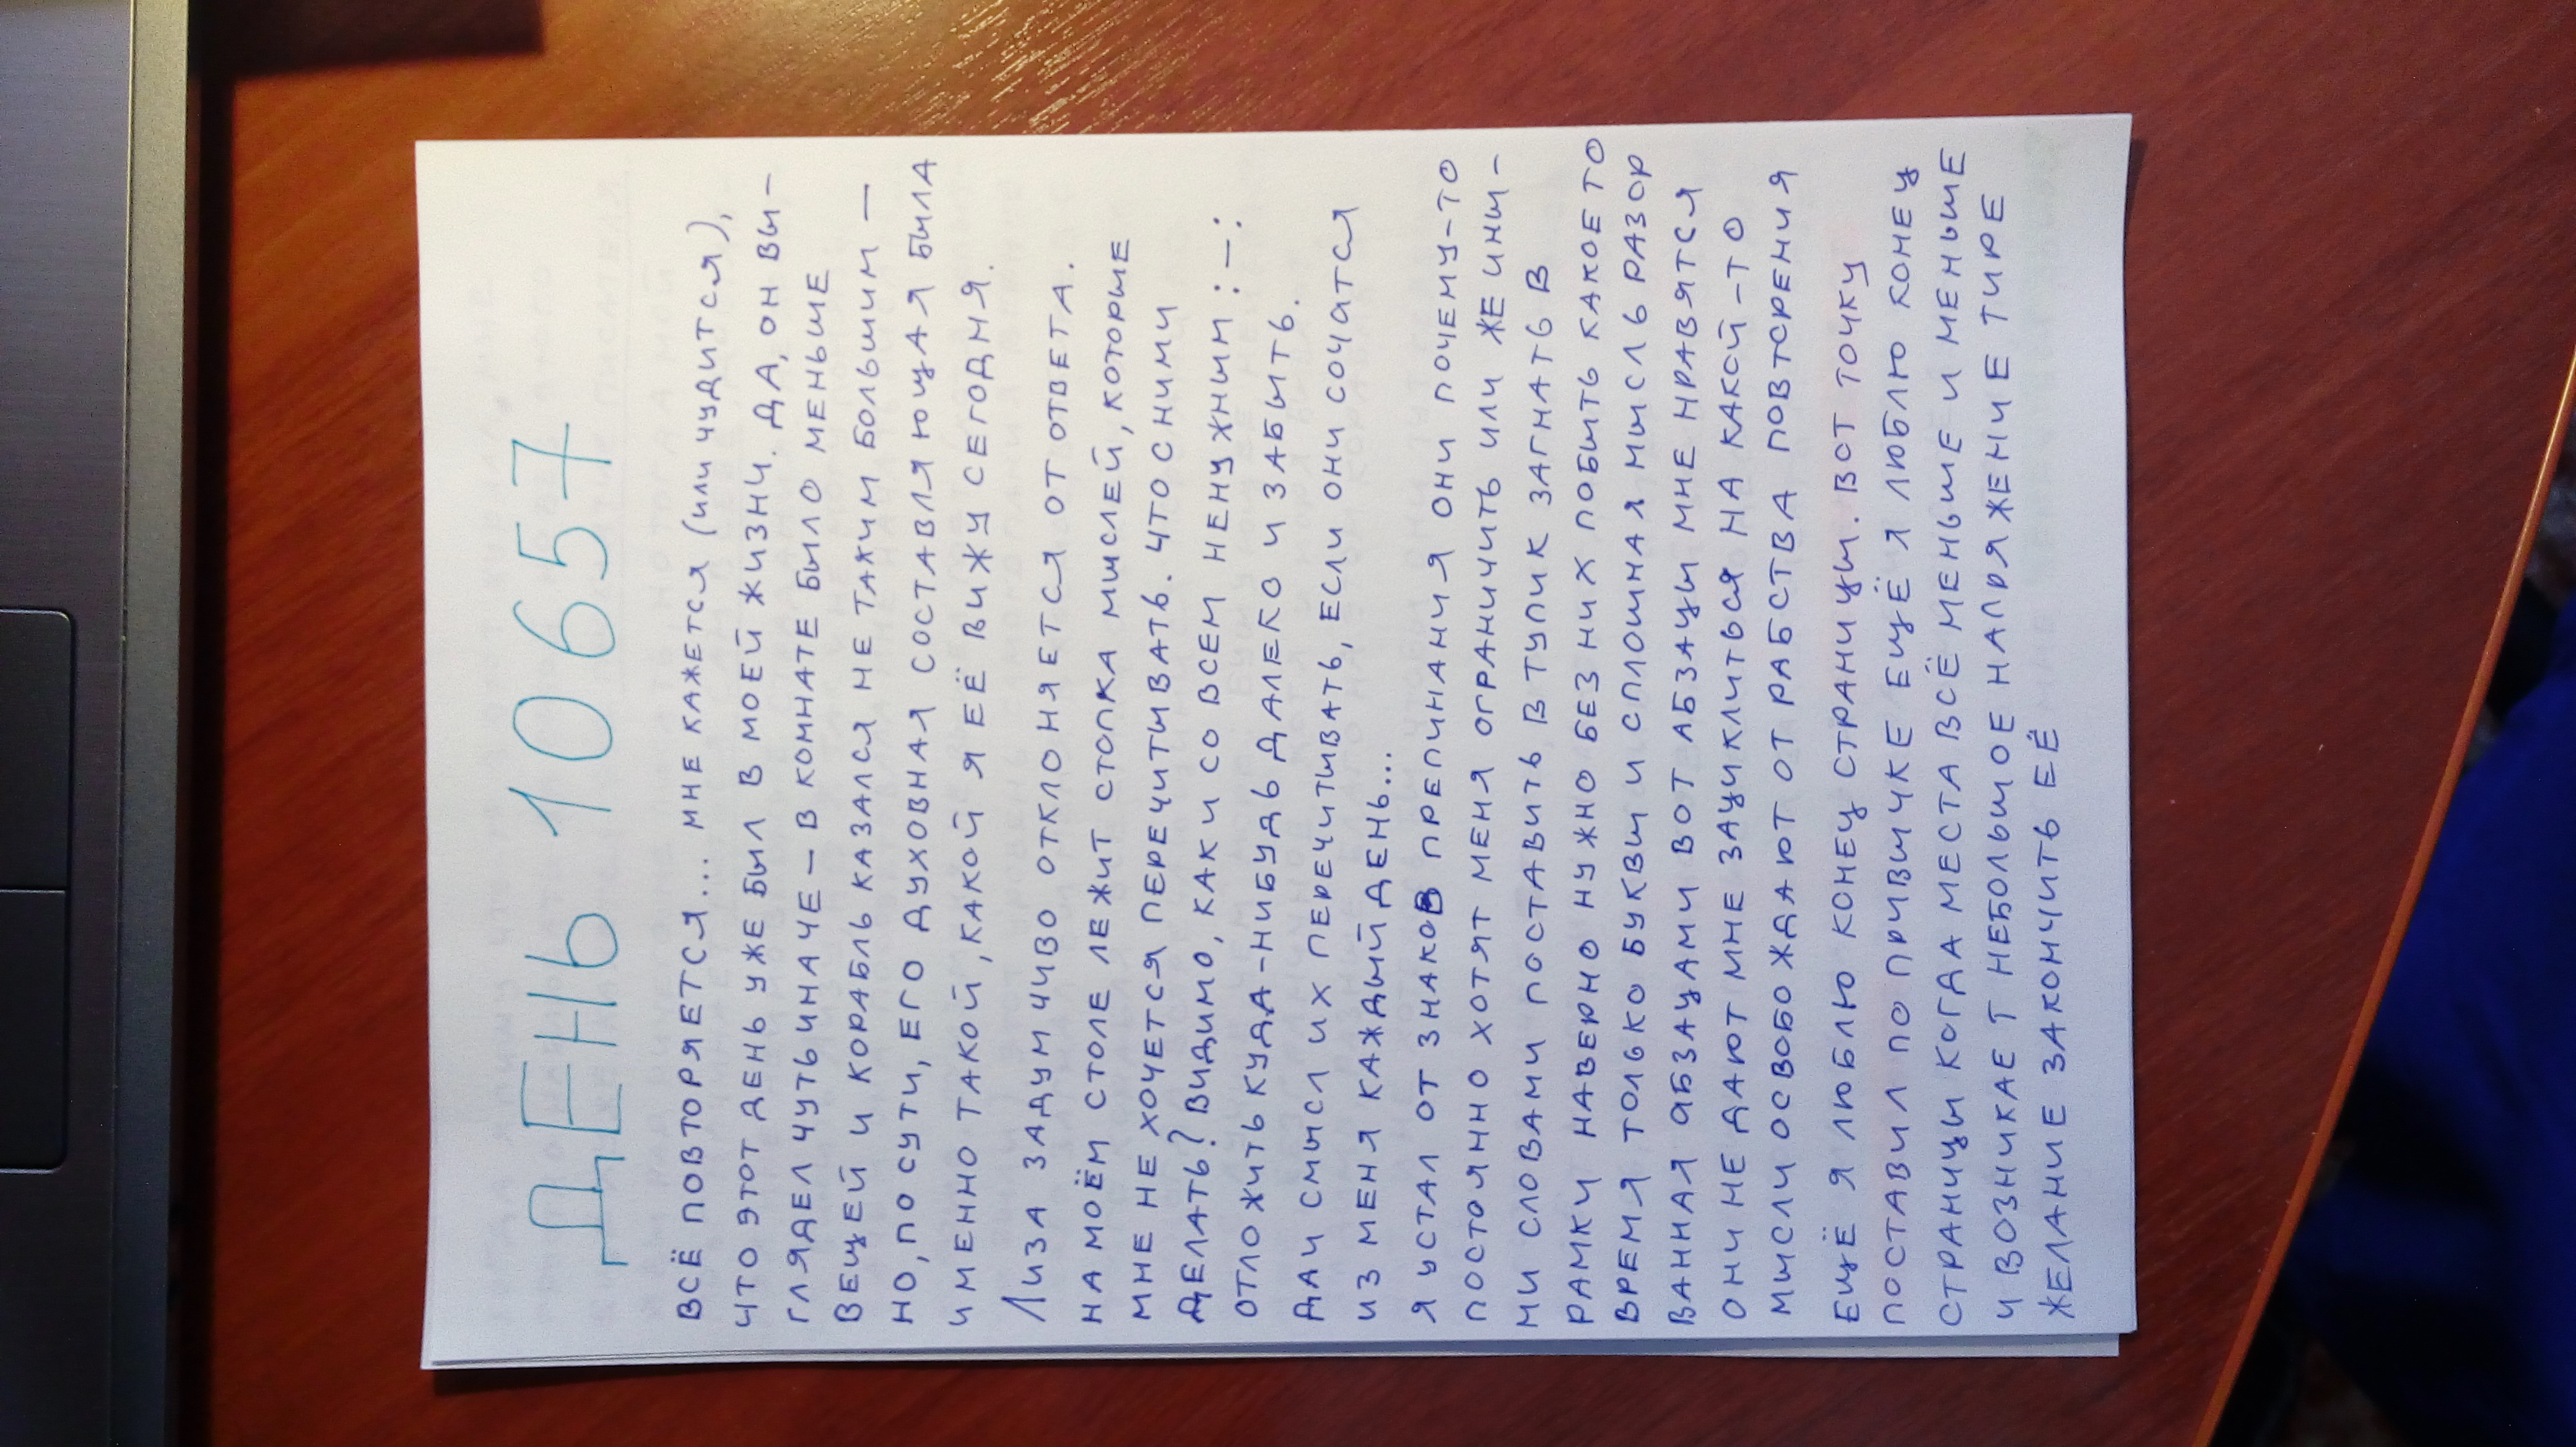 ДЕНЬ 10657
ВСЁ ПОВТОРЯЕТСЯ... МНЕ КАЖЕТСЯ (ИЛИ ЧУДИТСЯ),
ЧТО ЭТОТ ДЕНЬ УЖЕ БЫЛ В МОЕЙ ЖИЗНИ. ДА, ОН ВЫ-
ГЛЯДЕЛ ЧУТЬ ИНАЧЕ — В КОМНАТЕ БЫЛО МЕНЬШЕ
ВЕЩЕЙ И КОРАБЛЬ КАЗАЛСЯ НЕ ТАКИМ БОЛЬШИМ —
НО, ПО СУТИ, ЕГО ДУХОВНАЯ СОСТАВЛЯЮЩАЯ БЫЛА
ИМЕННО ТАКОЙ, КАКОЙ Я ЕЁ ВИЖУ СЕГОДНЯ.
ЛИЗА ЗАДУМЧИВО ОТКЛОНЯЕТСЯ ОТ ОТВЕТА.
НА МОЁМ СТОЛЕ ЛЕЖИТ СТОПКА МЫСЛЕЙ, КОТОРЫЕ
МНЕ НЕ ХОЧЕТСЯ ПЕРЕЧИТЫВАТЬ. ЧТО С НИМИ
ДЕЛАТЬ? ВИДИМО, КАК И СО ВСЕМ НЕНУЖНЫМ : — :
ОТЛОЖИТЬ КУДА-НИБУДЬ ДАЛЕКО И ЗАБЫТЬ.
ДА И СМЫСЛ ИХ ПЕРЕЧИТЫВАТЬ, ЕСЛИ ОНИ СОЧАТСЯ
ИЗ МЕНЯ КАЖДЫЙ ДЕНЬ...
Я УСТАЛ ОТ ЗНАКОВ ПРЕПИНАНИЯ ОНИ ПОЧЕМУ-ТО
ПОСТОЯННО ХОТЯТ МЕНЯ ОГРАНИЧИТЬ ИЛИ ЖЕ ИНЫ-
МИ СЛОВАМИ ПОСТАВИТЬ В ТУПИК ЗАГНАТЬ В
РАМКИ НАВЕРНО НУЖНО БЕЗ НИХ ПОБЫТЬ КАКОЕ ТО
ВРЕМЯ ТОЛЬКО БУКВЫ И СПЛОШНАЯ МЫСЛЬ РАЗОР
ВАННАЯ АБЗАЦАМИ ВОТ АБЗАЦЫ МНЕ НРАВЯТСЯ
ОНИ НЕ ДАЮТ МНЕ ЗАЦИКЛИТЬСЯ НА КАКОЙ-ТО
МЫСЛИ ОСВОБОЖДАЮТ ОТ РАБСТВА ПОВТОРЕНИЯ
ЕЩЁ Я ЛЮБЛЮ КОНЕЦ СТРАНИЦЫ. ВОТ ТОЧКУ
ПОСТАВИЛ ПО ПРИВЫЧКЕ ЕЩЁ Я ЛЮБЛЮ КОНЕЦ
СТРАНИЦЫ КОГДА МЕСТА ВСЁ МЕНЬШЕ И МЕНЬШЕ
И ВОЗНИКАЕТ НЕБОЛЬШОЕ НАПРЯЖЕНИЕ ТИРЕ
ЖЕЛАНИЕ ЗАКОНЧИТЬ ЕЁ